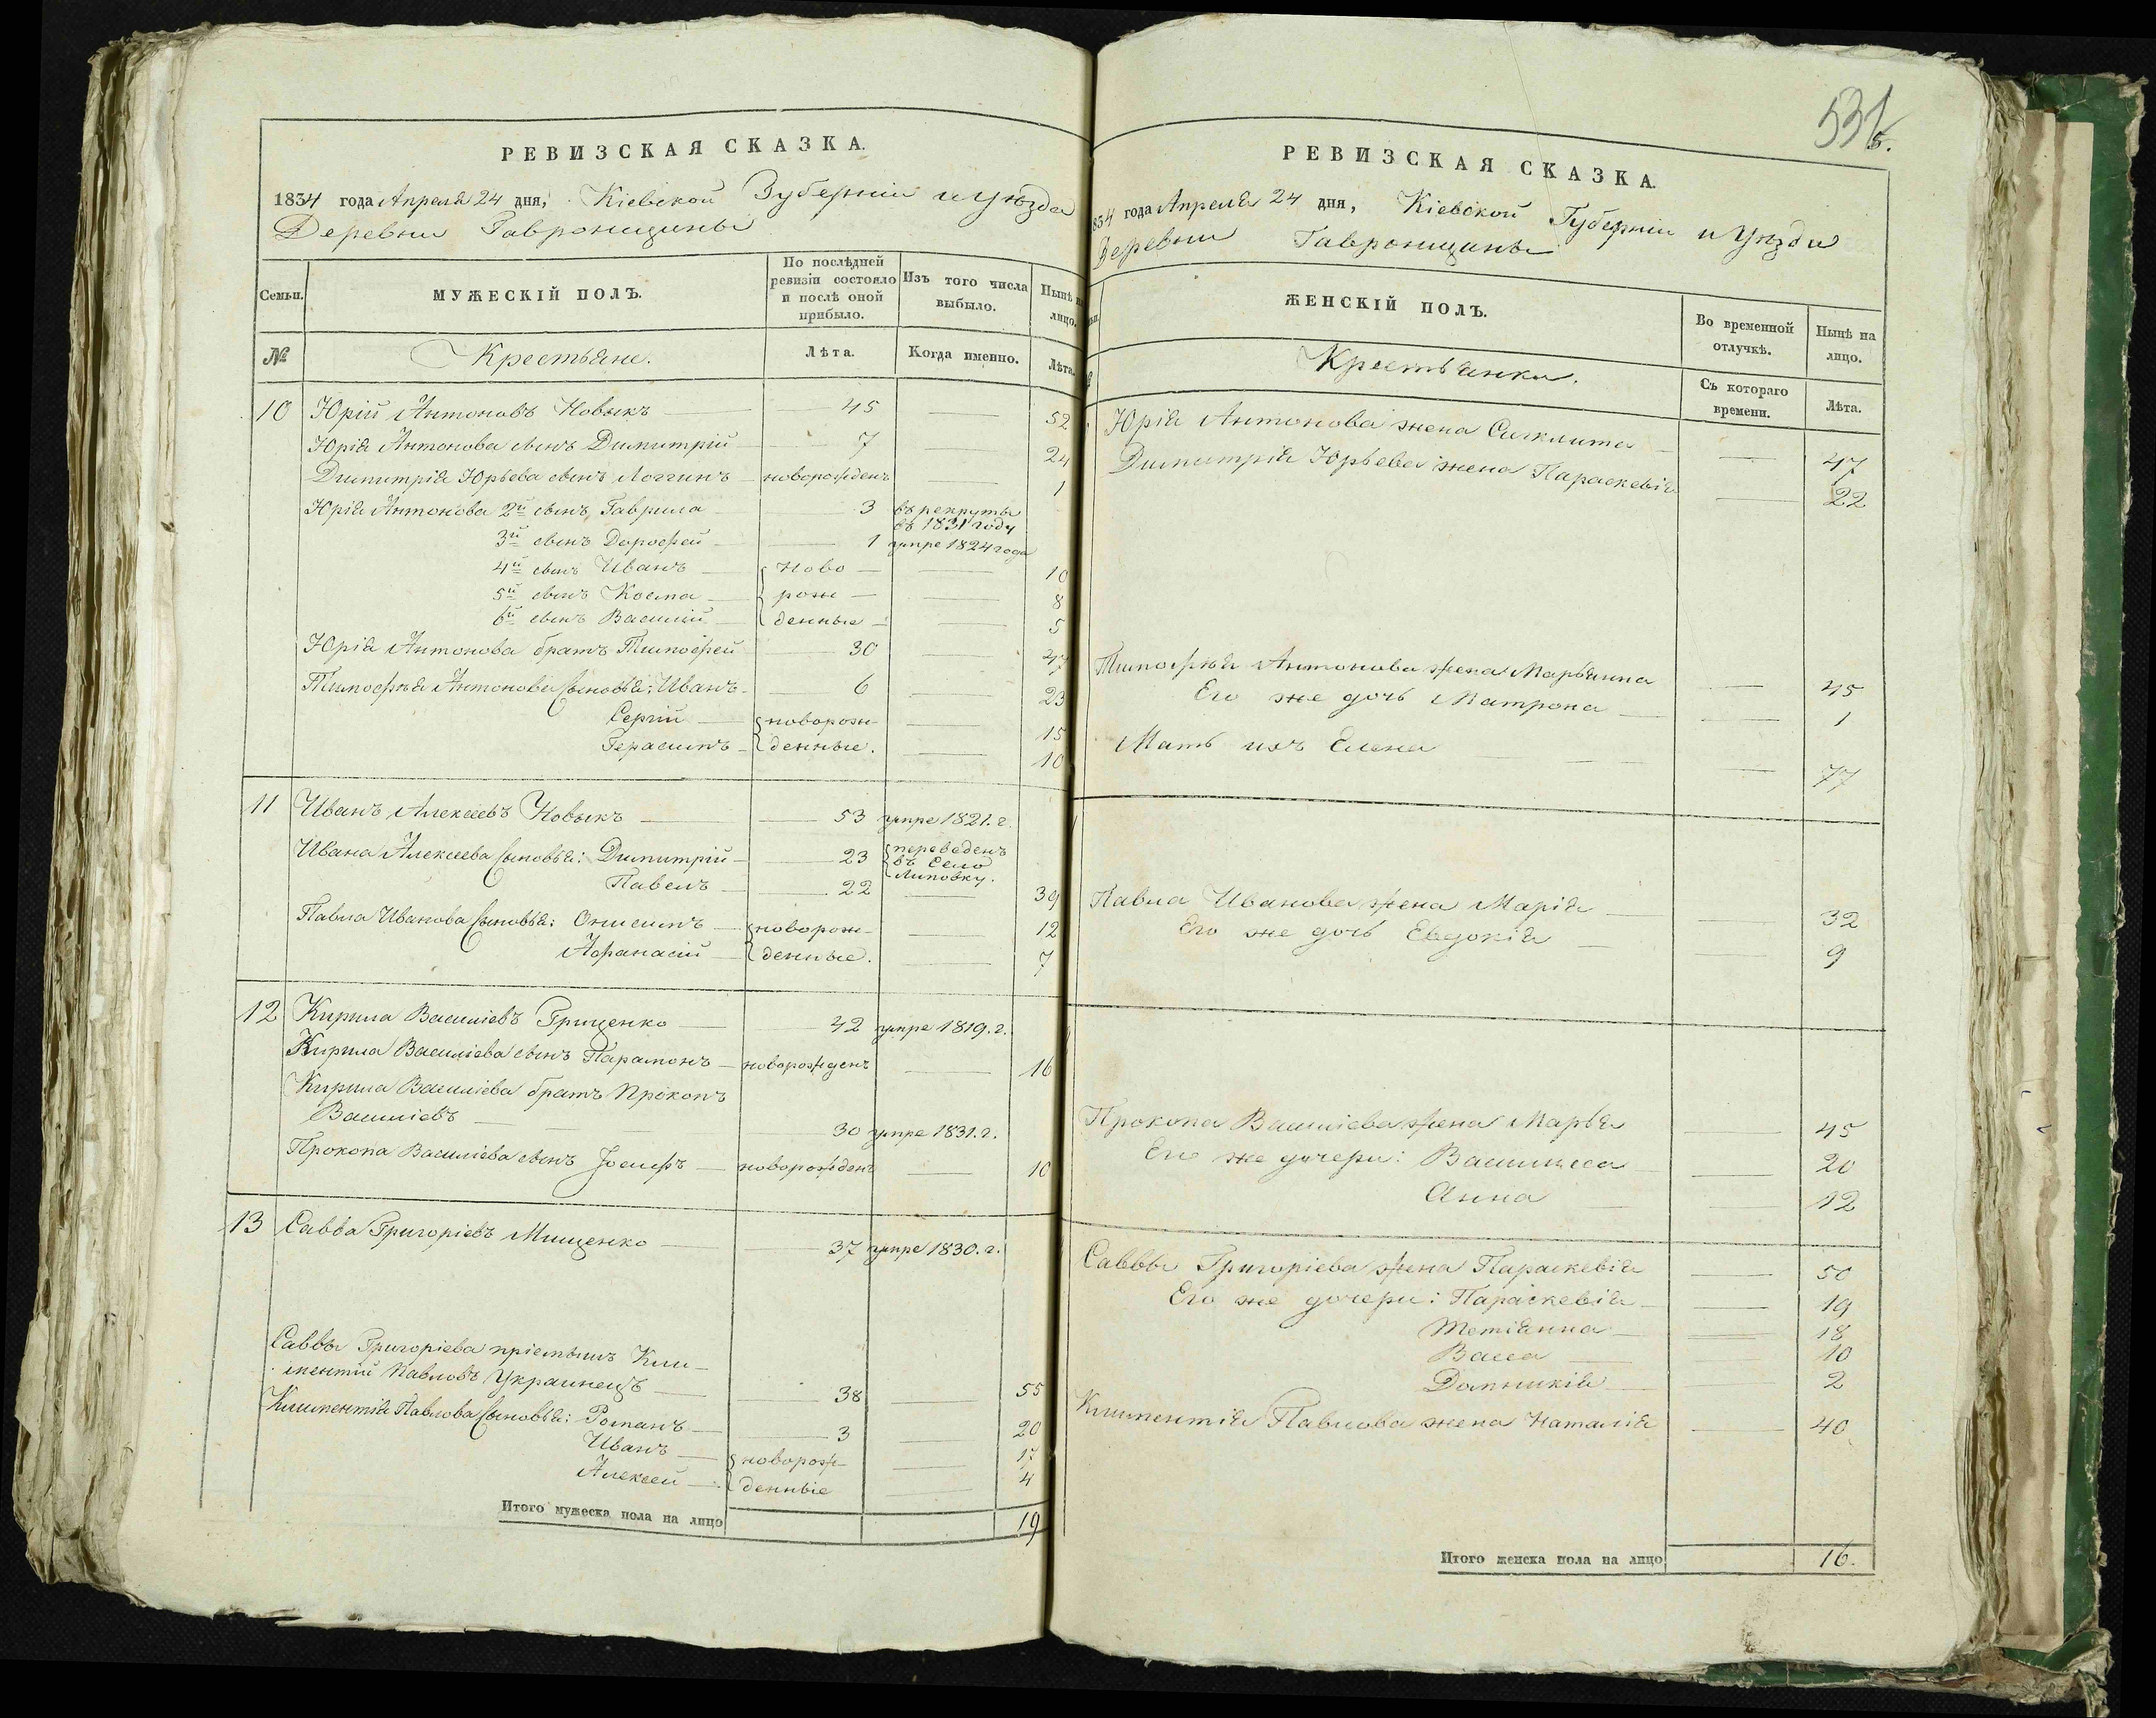 РЕВИЗСКАЯ СКАЗКА.
1834 года Апреля 24 дня, Кіевской Губерніи и Уѣзда
Деревни Гавронщины
Семьи.
МУЖЕСКІЙ ПОЛЪ.
По послѣдней
ревизіи состояло
и послѣ оной
прибыло.
Изъ того числа
выбыло.
Нынѣ на
лицо.
№
Крестьяне.
Лѣта.
Когда именно.
Лѣта.
10 Юрій Антоновъ Новыкъ 45 52
Юрія Антонова сынъ Димитрій 7 24
Димитрія Юрьева сынъ Логгинъ новорожденъ 1
Юрія Антонова 2й сынъ Гаврила 3 въ рекруты
въ 1831 году
3й сынъ Дорофей 1 умре 1824 года
4й сынъ Иванъ Ново 10
5й сынъ Косма рож 8
6й сынъ Василій денные 5
Юрія Антонова братъ Тимофей 30 47
Тимофѣя Антонова сыновья: Иванъ 6 23
Сергій новорож- 15
Герасимъ денные. 10
11 Иванъ Алексеевъ Новыкъ 53 умре 1821. г.
Ивана Алексеева сыновья: Димитрій 23 переведенъ
въ Село
Липовку.
Павелъ 22 39
Павла Иванова сыновья: Онисимъ новорож- 12
Афанасій денные. 7
12 Кирила Василіевъ Гриценко 42 умре 1819. г.
Кирила Василіева сынъ Парамонъ новорожденъ 16
Кирила Василіева братъ Прокопъ
Василіевъ 30 умре 1831. г.
Прокопа Василіева сынъ Іосифъ новорожденъ 10
13 Савва Григоріевъ Мищенко 37 умре 1830. г.
Саввы Григоріева пріемышъ Кли-
ментій Павловъ Украинецъ 38 55
Климентія Павлова сыновья: Романъ 3 20
Иванъ новорож- 17
Алексей денные 4
Итого мужеска пола на лицо 19
531
5.
РЕВИЗСКАЯ СКАЗКА.
834 года Апреля 24 дня, Кіевской Губерніи и Уѣзда
Деревни Гавронщины
ЖЕНСКІЙ ПОЛЪ.
Во временной
отлучкѣ.
Нынѣ на
лицо.
Крестьянки.
Съ котораго
времени.
Лѣта.
Юрія Антонова жена Сиклита 47
Димитрія Юрьева жена Параскевія 22
Тимофѣя Антонова жена Марьянна 45
Его же дочь Матрона 1
Мать ихъ Елена 77
Павла Иванова жена Марія 32
Его же дочь Евдокія 9
Прокопа Василіева жена Марья 45
Его же дочери: Василисса 20
Анна 12
Саввы Григоріева жена Параскевія 50
Его же дочери: Параскевія 19
Тетіянна 18
Васса 10
Домникія 2
Климентія Павлова жена Наталія 40
Итого женска пола на лицо 16.